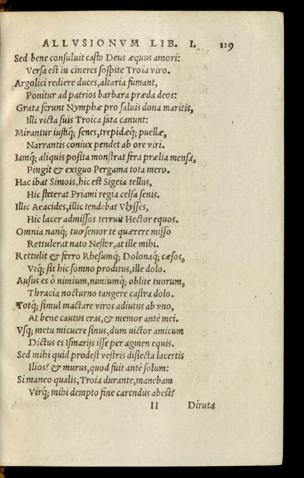 ALLVSIONVM LIB. I. 129
Sed bene consuluit casto Deus æquus amori:
Versa est in cineres sospite Troia viro.
Argolici rediere duces, altaria fumant,
Ponitur ad patrios barbara præda deos:
Grata ferunt Nymphæ pro saluis dona maritis,
Illi victa suis Troica fata canunt:
Mirantur iustiq́; senes, trepidæq́; puellæ,
Narrantis coniux pendet ab ore viri.
Iamq́; aliquis posita monstrat fera prælia mensa,
Pingit & exiguo Pergama tota mero.
Hac ibat Simois, hic est Sigeia tellus,
Hic steterat Priami regia celsa senis.
Illic Aeacides, illic tendebat Vlysses,
Hic lacer admissos terruit Hector equos.
Omnia nanq́; tuo senior te quærere misso
Rettulerat nato Nestor, at ille mihi.
Rettulit & ferro Rhesumq́; Dolonaq́; cæsos,
Vtq́; sit hic somno proditus, ille dolo.
Ausus es ô nimium, nimiumq́; oblite tuorum,
Thracia nocturno tangere castra dolo.
Totq́; simul mactare viros adiutus ab vno,
At bene cautus eras, & memor antè mei.
Vsq́; metu micuere sinus, dum victor amicum
Dictus es Ismarijs isse per agmen equis.
Sed mihi quid prodest vestris disiecta lacertis
Ilios? & murus, quod fuit antè solum:
Si maneo qualis, Troia durante, manebam
Virq́; mihi dempto fine carendus abest?
II Diruta